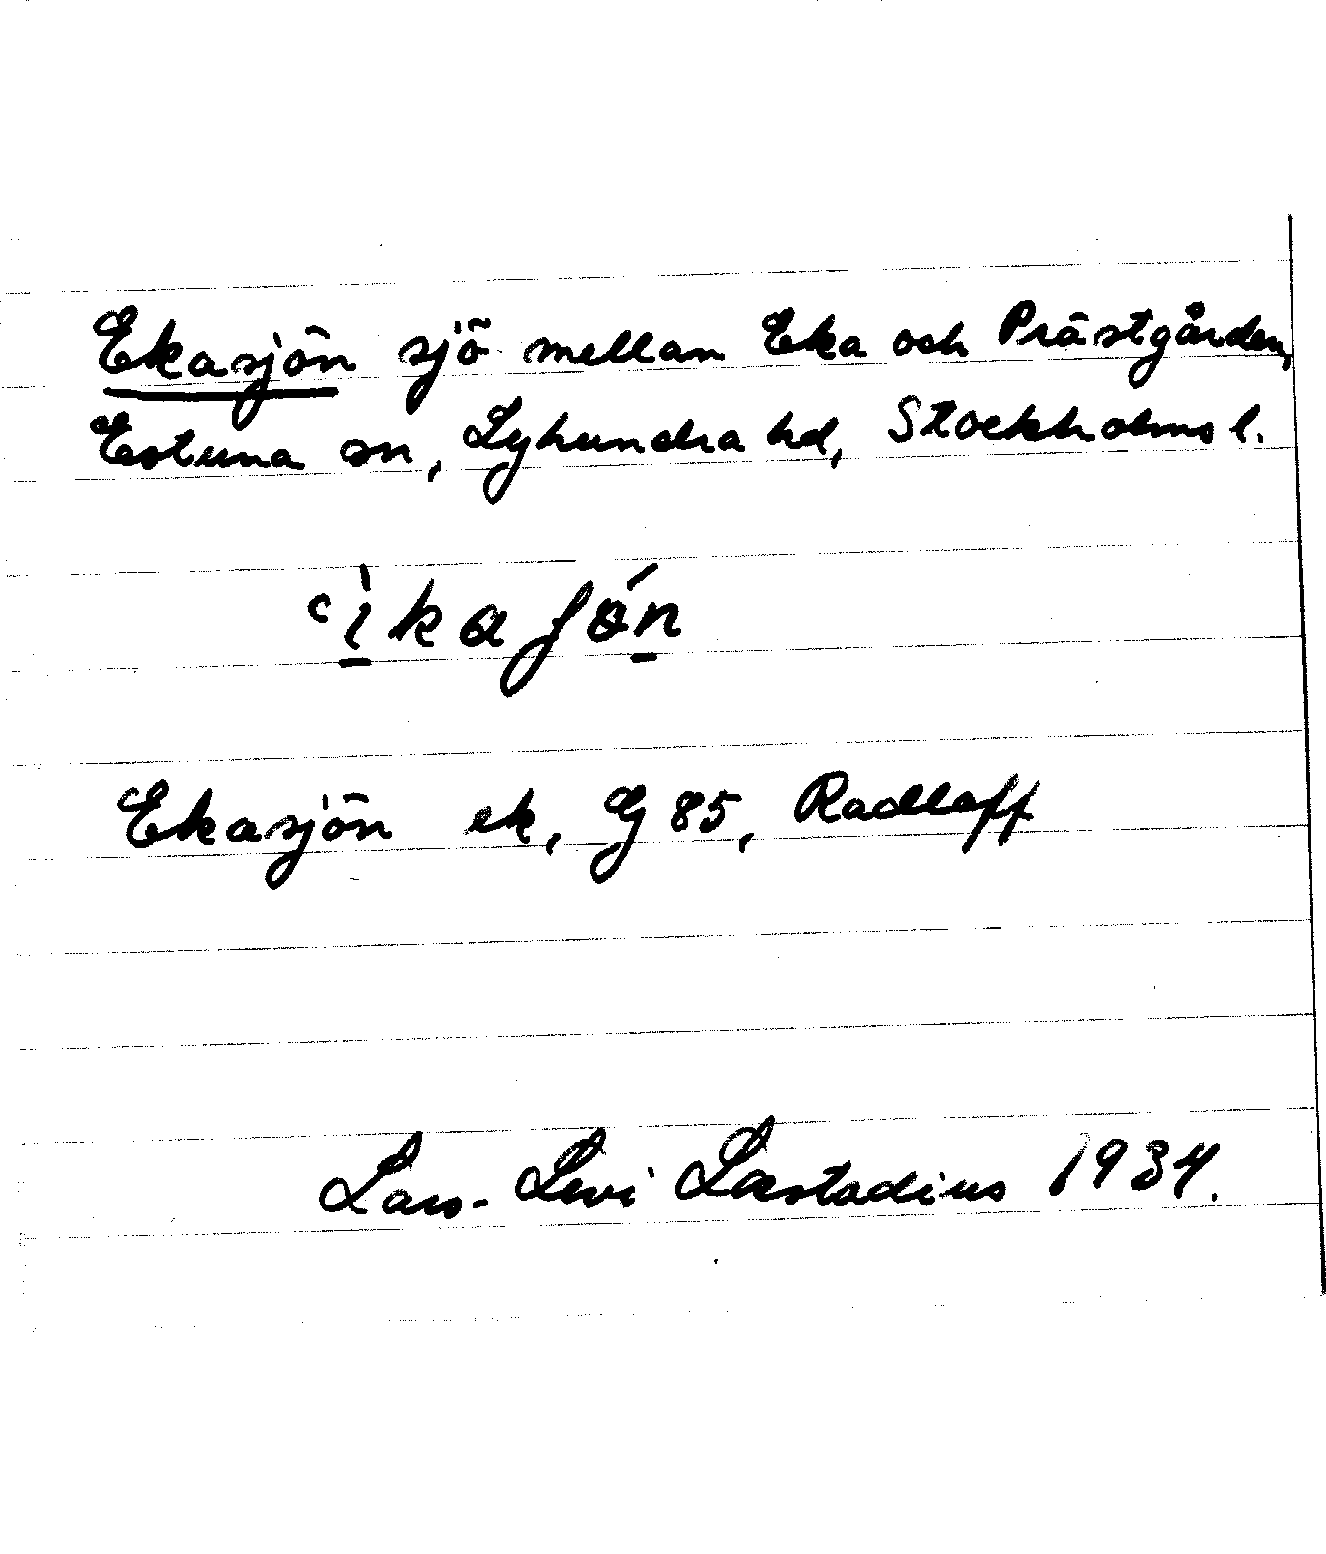 Ekasjön sjö mellan Eka och Prästgården,
Estuna sn, Lyhundra hd, Stockholms l.
Ekasjön ek, G 85, Radloff
Lars-Levi Læstadius 1934.